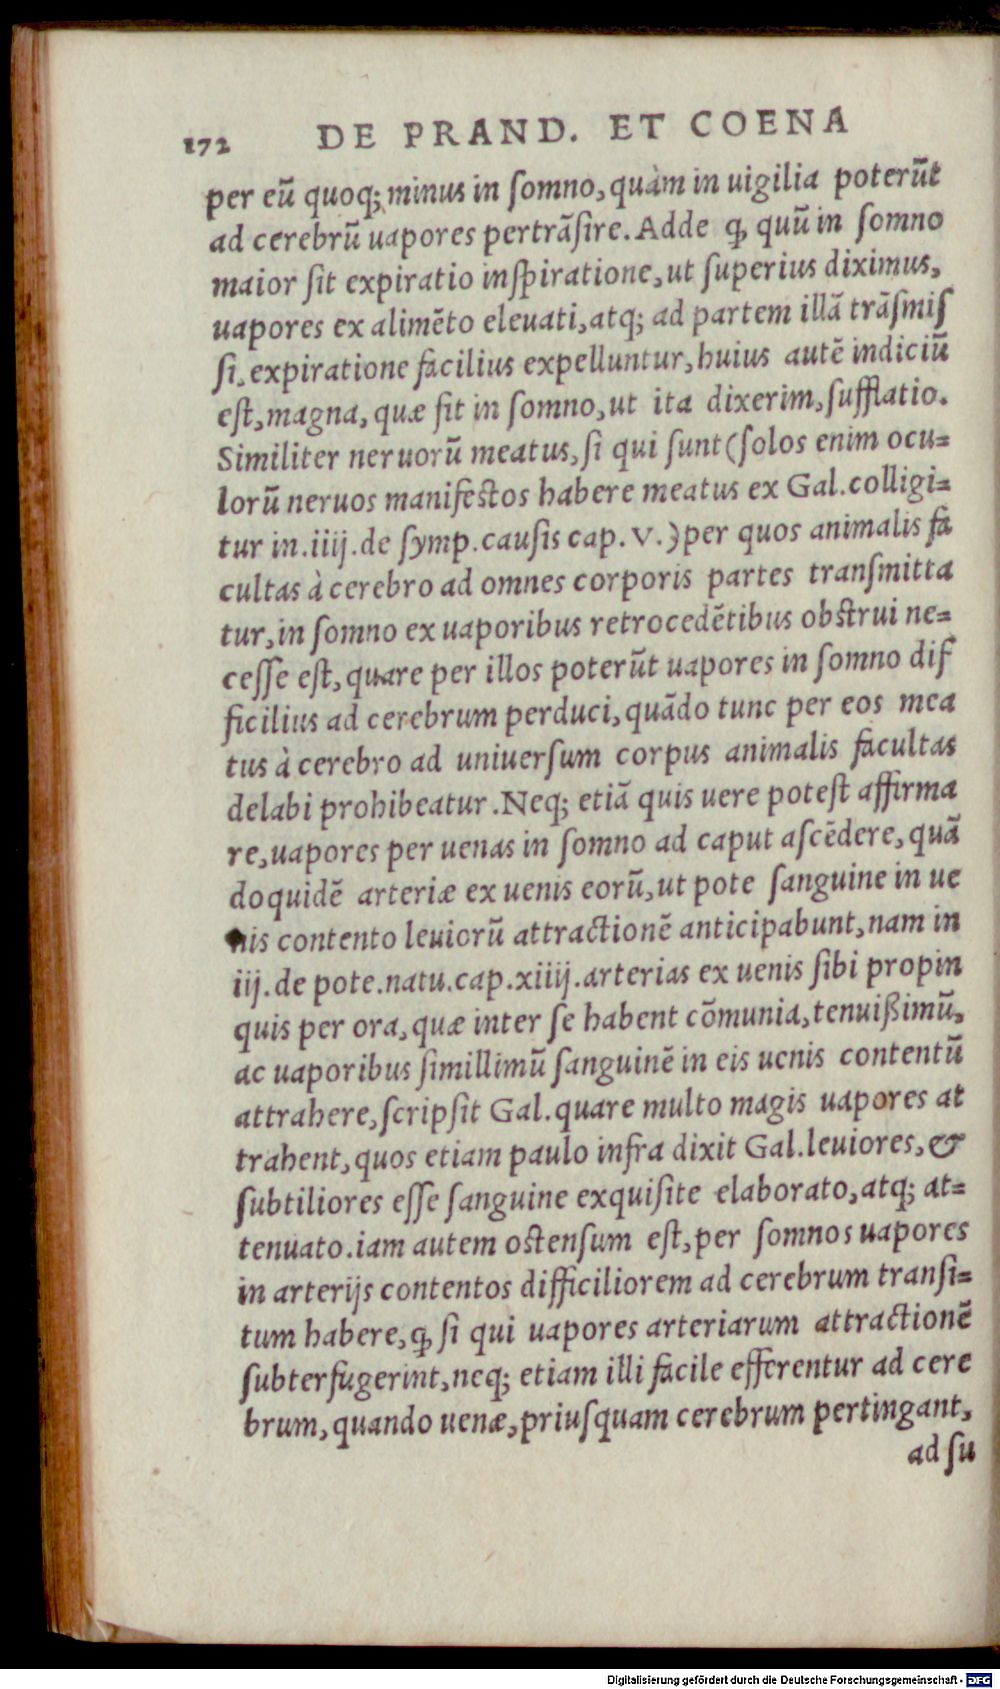 172 DE PRAND. ET COENA
per eũ quoq; minus in ſomno, quàm in uigilia poterũt
ad cerebrũ uapores pertrãſire. Adde ꝙ quũ in ſomno
maior ſit expiratio inſpiratione, ut ſuperius diximus,
uapores ex alimẽto eleuati, atq; ad partem illã trãſmiſ
ſi, expiratione facilius expelluntur, huius autẽ indiciũ
eſt, magna, quæ fit in ſomno, ut ita dixerim, ſufflatio.
Similiter neruorũ meatus, ſi qui ſunt (ſolos enim ocu=
lorũ neruos manifeſtos habere meatus ex Gal. colligi=
tur in .iiij. de ſymp. cauſis cap. V.) per quos animalis fa
cultas à cerebro ad omnes corporis partes tranſmitta
tur, in ſomno ex uaporibus retrocedẽtibus obſtrui ne=
ceſſe eſt, quare per illos poterũt uapores in ſomno dif
ficilius ad cerebrum perduci, quãdo tunc per eos mea
tus à cerebro ad uniuerſum corpus animalis facultas
delabi prohibeatur. Neq; etiã quis uere poteſt affirma
re, uapores per uenas in ſomno ad caput aſcẽdere, quã
doquidẽ arteriæ ex uenis eorũ, ut pote ſanguine in ue
nis contento leuiorũ attractionẽ anticipabunt, nam in
iij. de pote. natu. cap. xiiij. arterias ex uenis ſibi propin
quis per ora, quæ inter ſe habent cõmunia, tenuißimũ,
ac uaporibus ſimillimũ ſanguinẽ in eis uenis contentũ
attrahere, ſcripſit Gal. quare multo magis uapores at
trahent, quos etiam paulo infra dixit Gal. leuiores, &
ſubtiliores eſſe ſanguine exquiſite elaborato, atq; at=
tenuato. iam autem oſtenſum eſt, per ſomnos uapores
in arterijs contentos difficiliorem ad cerebrum tranſi=
tum habere, ꝙ ſi qui uapores arteriarum attractionẽ
ſubterfugerint, neq; etiam illi facile efferentur ad cere
brum, quando uenæ, priuſquam cerebrum pertingant,
ad ſu
Digitalisierung gefördert durch die Deutsche Forschungsgemeinschaft - DFG